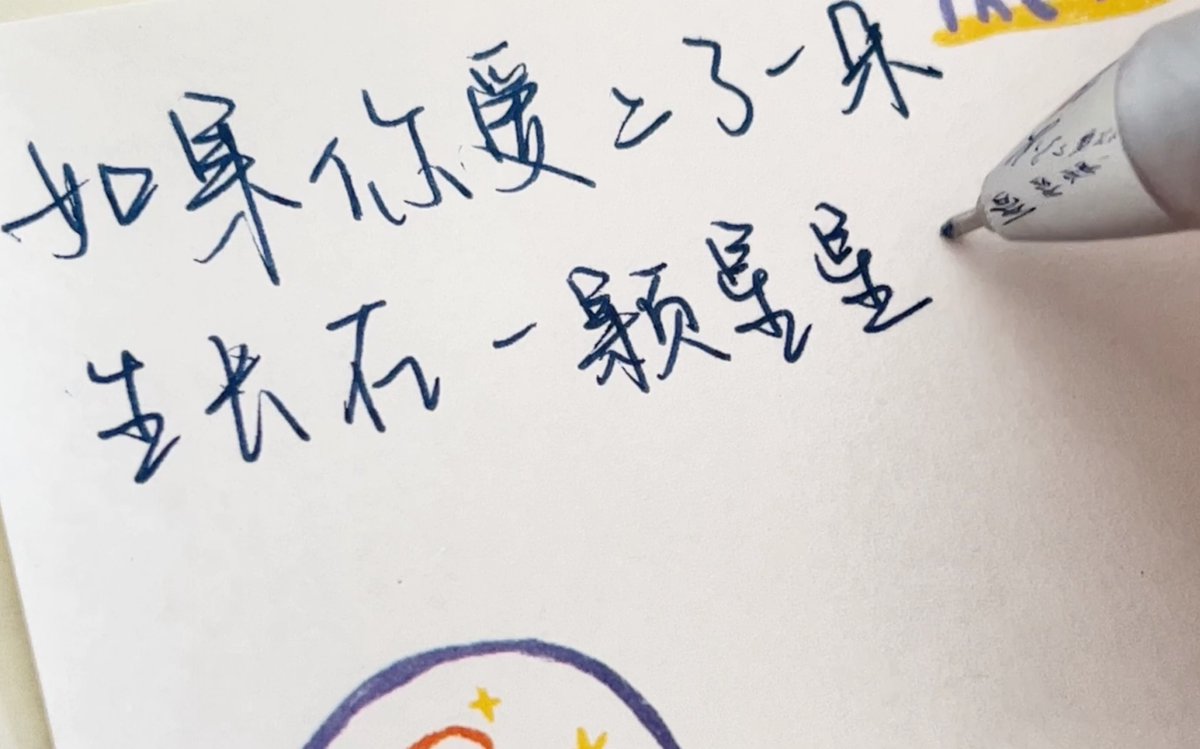 如果你爱上了一朵
生长在一颗星星